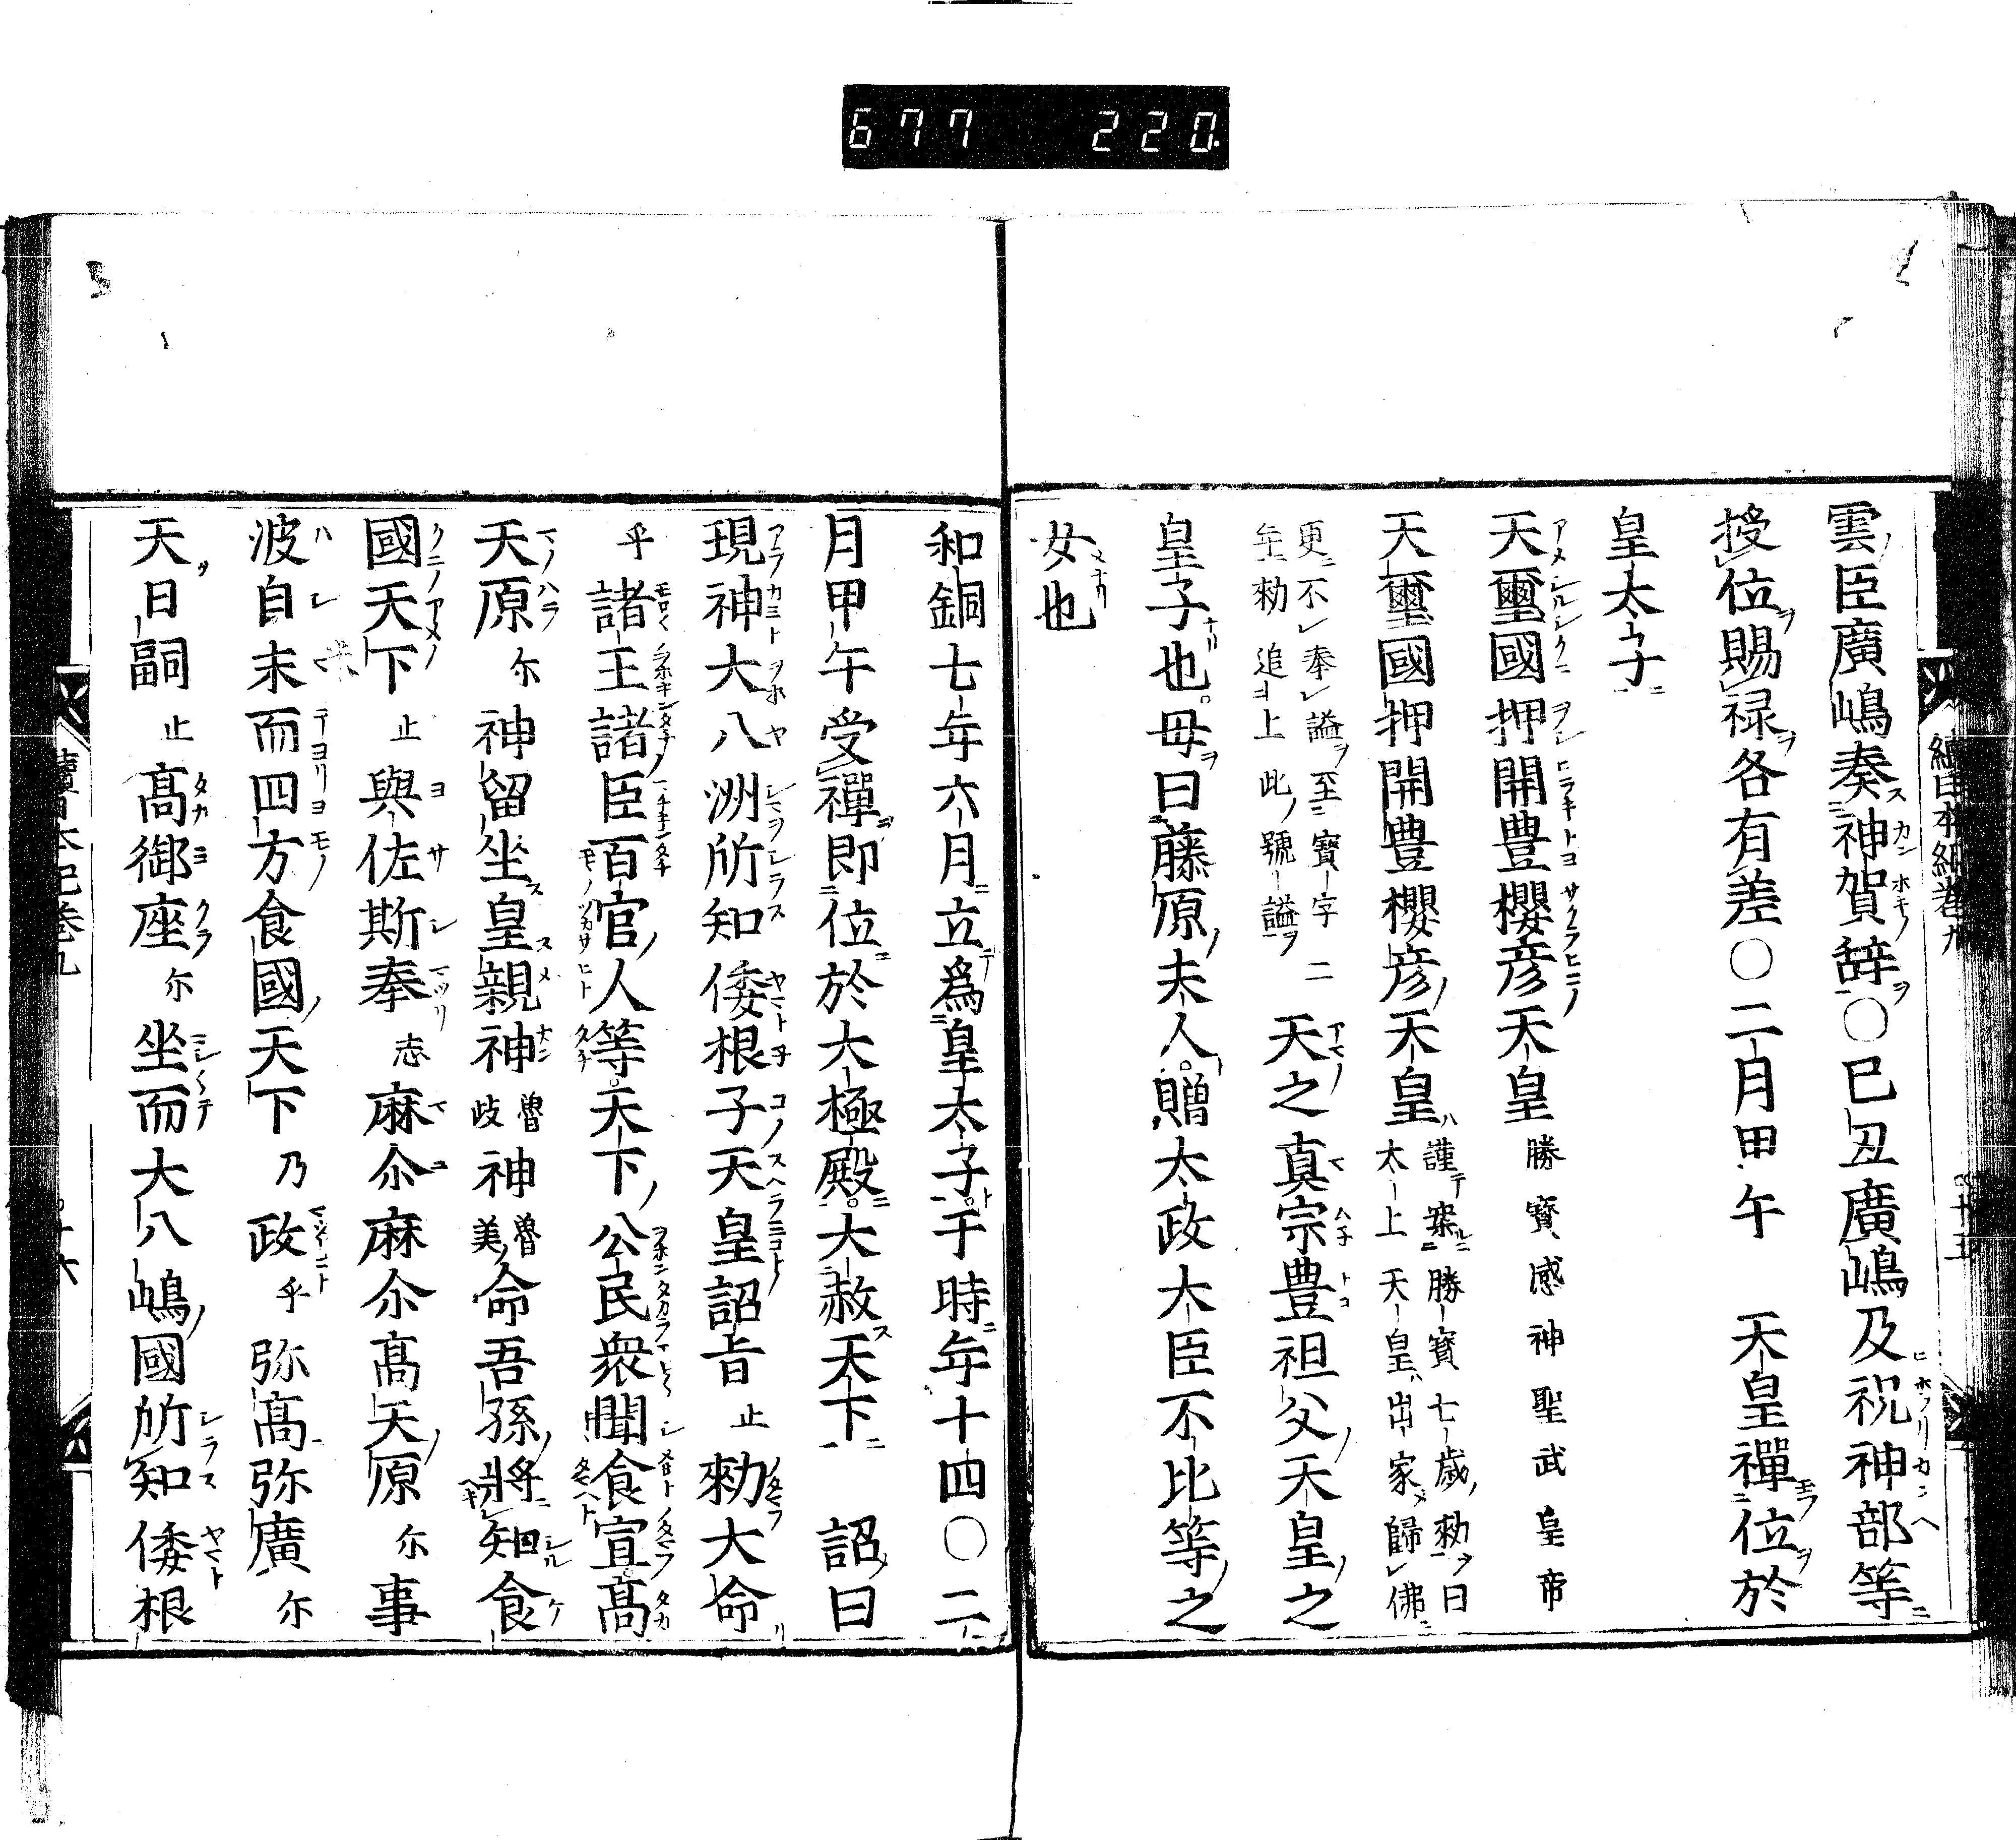 677 220.
續日本紀卷九
雲臣廣嶋奏神賀辭○巳丑廣嶋及祝神部等
授位賜禄各有差○二月甲午 天皇禪位於
皇太子
天璽國押開豊櫻彦天皇 勝寳感神聖武皇帝
天璽國押開豊櫻彦天皇 謹案勝寳七歳勅曰
太上天皇出家歸佛
更不奉謚至寳字二
年勅追上此號謚 天之真宗豊祖父天皇之
皇子也母曰藤原夫人贈太政大臣不比等之
女也
和銅七年六月立爲皇太子于時年十四○二
月甲午受禪即位於大極殿大赦天下 詔曰
現神大八洲所知倭根子天皇詔旨止勅大命
乎諸王諸臣百官人等天下公民衆聞食宣髙
天原尓神留坐皇親神魯岐神魯美命吾孫將知食
國天下止與佐斯奉志麻尓麻尓髙天原尓事
波自末而四方食國天下乃政乎弥髙弥廣尓
天日嗣止髙御座尓坐而大八嶋國所知倭根